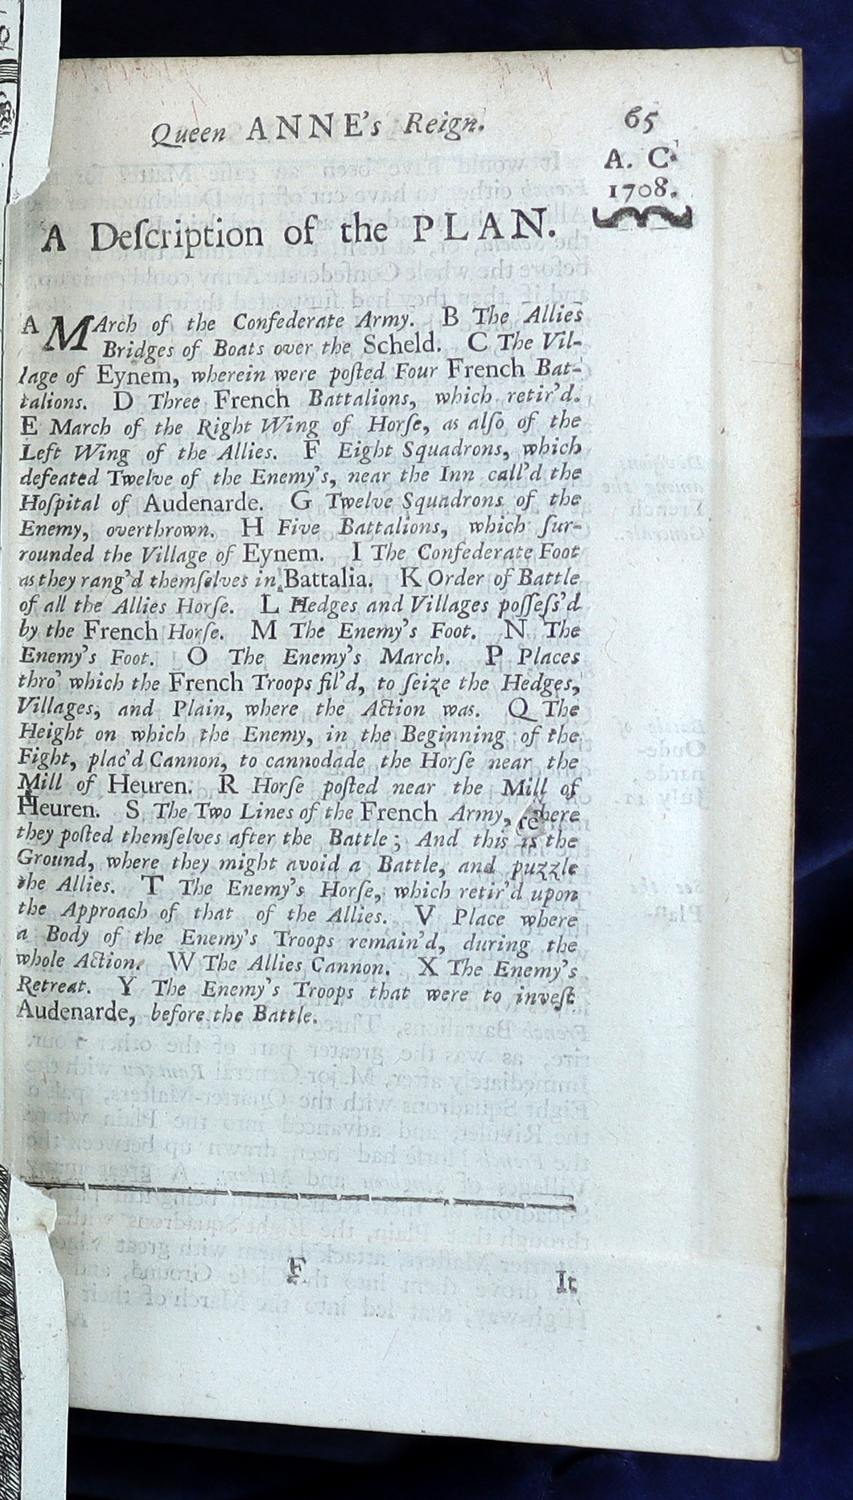 Queen ANNE's Reign. 65
A. C.
1708.
A Deſcription of the PLAN.
A MArch of the Confederate Army. B The Allies
Bridges of Boats over the Scheld. C The Vil-
lage of Eynem, wherein were poſted Four French Bat-
talions. D Three French Battalions, which retir'd.
E March of the Right Wing of Horſe, as alſo of the
Left Wing of the Allies. F Eight Squadrons, which
defeated Twelve of the Enemy's, near the Inn call'd the
Hoſpital of Audenarde. G Twelve Squadrons of the
Enemy, overthrown. H Five Battalions, which ſur-
rounded the Village of Eynem. I The Confederate Foot
as they rang'd themſelves in Battalia. K Order of Battle
of all the Allies Horſe. L Hedges and Villages poſſeſs'd
by the French Horſe. M The Enemy's Foot. N The
Enemy's Foot. O The Enemy's March. P Places
thro' which the French Troops fil'd, to ſeize the Hedges,
Villages, and Plain, where the Action was. Q The
Height on which the Enemy, in the Beginning of the
Fight, plac'd Cannon, to cannodade the Horſe near the
Mill of Heuren. R Horſe poſted near the Mill of
Heuren. S The Two Lines of the French Army, where
they poſted themſelves after the Battle; And this is the
Ground, where they might avoid a Battle, and puzzle
the Allies. T The Enemy's Horſe, which retir'd upon
the Approach of that of the Allies. V Place where
a Body of the Enemy's Troops remain'd, during the
whole Action. W The Allies Cannon. X The Enemy's
Retreat. Y The Enemy's Troops that were to inveſt
Audenarde, before the Battle.
F It